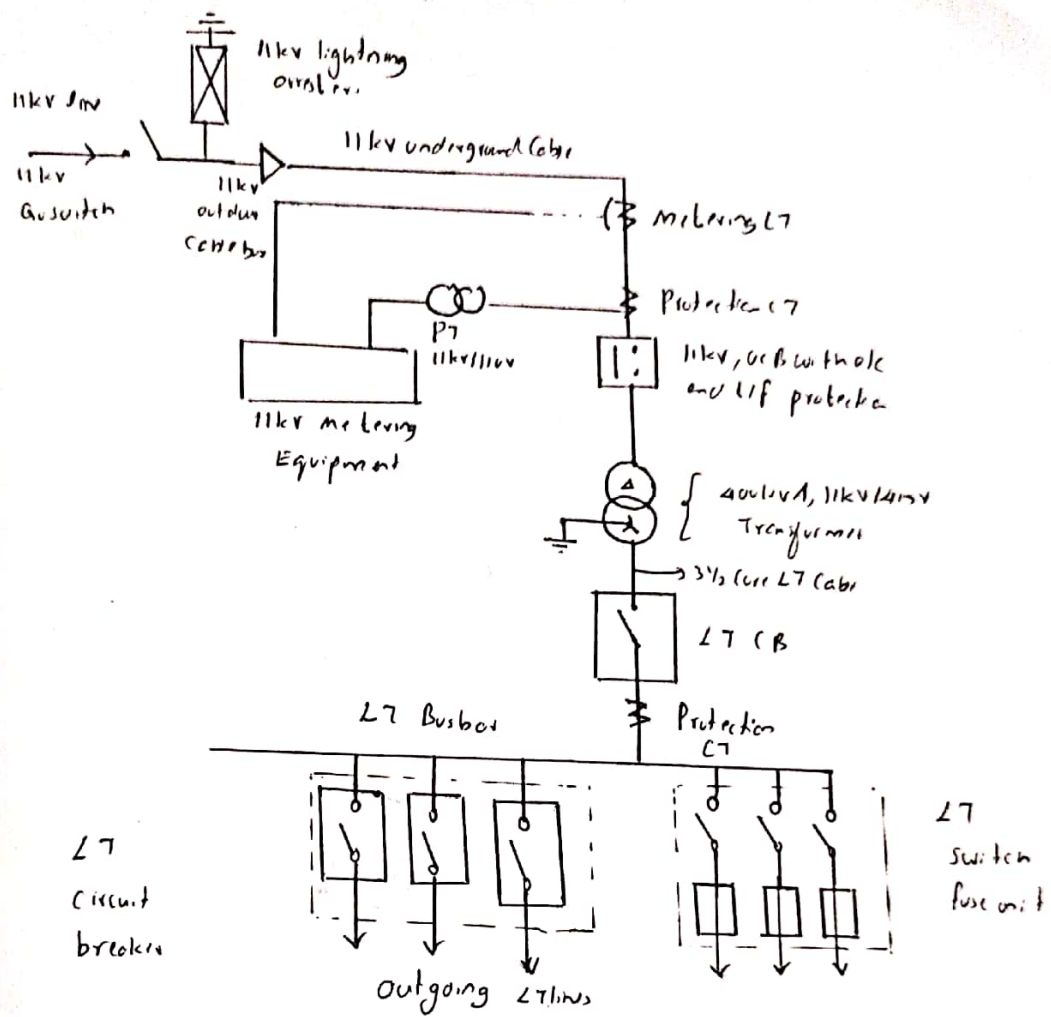 11kv lightning
arrester.
11kv line
11kv
11kv underground Cable
11kv
outdoor
Metering CT
Protection CT
PT
11kv/110v
11kv, OCB with o/c
and E/F protection
11kv metering
Equipment
400kVA, 11kV/415V
Transformer
3½ Core LT Cable
LT CB
LT Busbar
Protection
CT
LT
Circuit
breaker
LT
switch
fuse unit
Outgoing LT lines